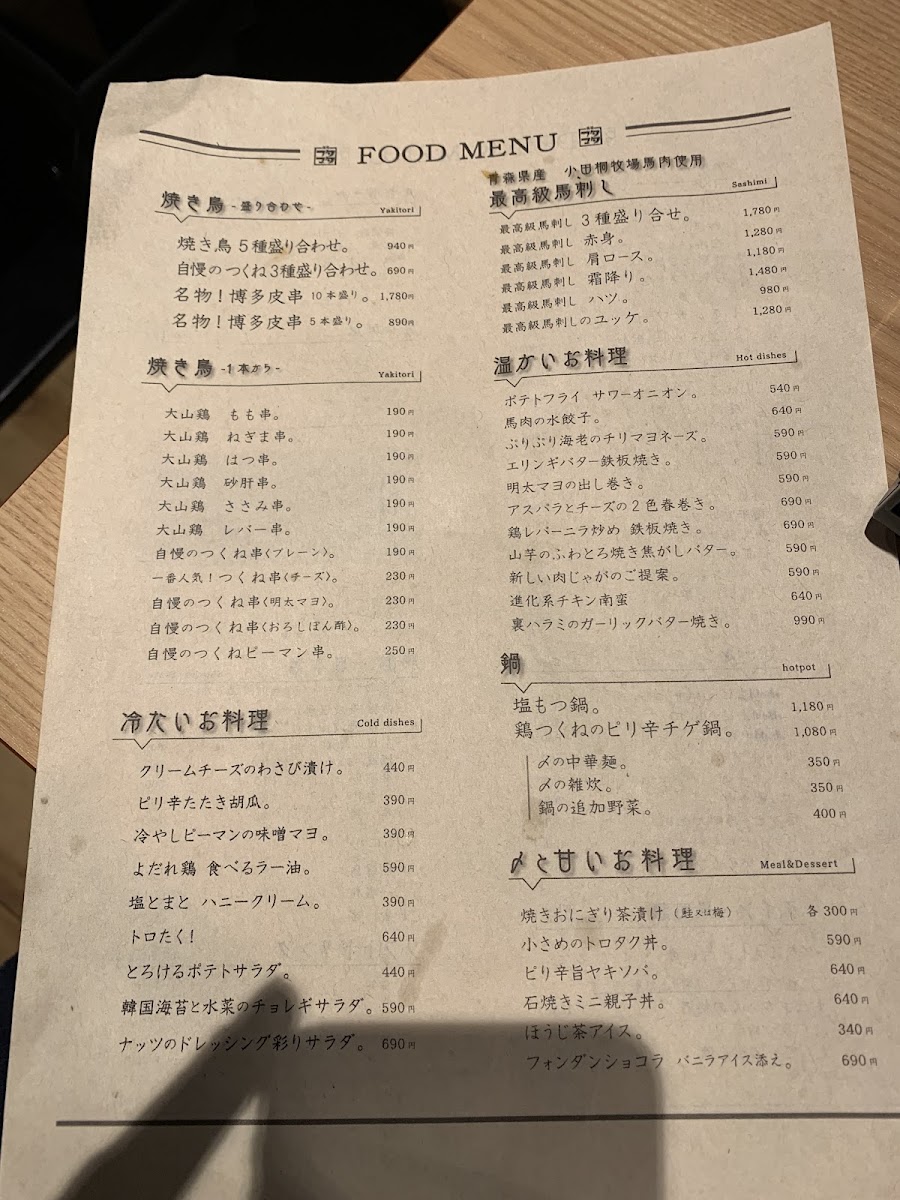 FOOD MENU
焼き鳥 -盛り合わせ- Yakitori
焼き鳥 5種盛り合わせ。 940円
自慢のつくね3種盛り合わせ。 690円
名物！博多皮串 10本盛り。 1,780円
名物！博多皮串 5本盛り。 890円
焼き鳥 -1本から- Yakitori
大山鶏 もも串。 190円
大山鶏 ねぎま串。 190円
大山鶏 はつ串。 190円
大山鶏 砂肝串。 190円
大山鶏 ささみ串。 190円
大山鶏 レバー串。 190円
自慢のつくね串〈プレーン〉。 190円
一番人気！つくね串〈チーズ〉。 230円
自慢のつくね串〈明太マヨ〉。 230円
自慢のつくね串〈おろしぽん酢〉。 230円
自慢のつくねピーマン串。 250円
冷たいお料理 Cold dishes
クリームチーズのわさび漬け。 440円
ピリ辛たたき胡瓜。 390円
冷やしピーマンの味噌マヨ。 390円
よだれ鶏 食べるラー油。 590円
塩とまと ハニークリーム。 390円
トロたく！ 640円
とろけるポテトサラダ。 440円
韓国海苔と水菜のチョレギサラダ。 590円
ナッツのドレッシング彩りサラダ。 690円
青森県産 小田桐牧場馬肉使用
最高級馬刺し Sashimi
最高級馬刺し 3種盛り合せ。 1,780円
最高級馬刺し 赤身。 1,280円
最高級馬刺し 肩ロース。 1,180円
最高級馬刺し 霜降り。 1,480円
最高級馬刺し ハツ。 980円
最高級馬刺しのユッケ。 1,280円
温かいお料理 Hot dishes
ポテトフライ サワーオニオン。 540円
馬肉の水餃子。 640円
ぷりぷり海老のチリマヨネーズ。 590円
エリンギバター鉄板焼き。 590円
明太マヨの出し巻き。 590円
アスパラとチーズの2色春巻き。 690円
鶏レバーニラ炒め 鉄板焼き。 690円
山芋のふわとろ焼き焦がしバター。 590円
新しい肉じゃがのご提案。 590円
進化系チキン南蛮 640円
裏ハラミのガーリックバター焼き。 990円
鍋 hotpot
塩もつ鍋。 1,180円
鶏つくねのピリ辛チゲ鍋。 1,080円
〆の中華麺。 350円
〆の雑炊。 350円
鍋の追加野菜。 400円
〆と甘いお料理 Meal&Dessert
焼きおにぎり茶漬け（鮭又は梅） 各300円
小さめのトロタク丼。 590円
ピリ辛旨ヤキソバ。 640円
石焼きミニ親子丼。 640円
ほうじ茶アイス。 340円
フォンダンショコラ バニラアイス添え。 690円